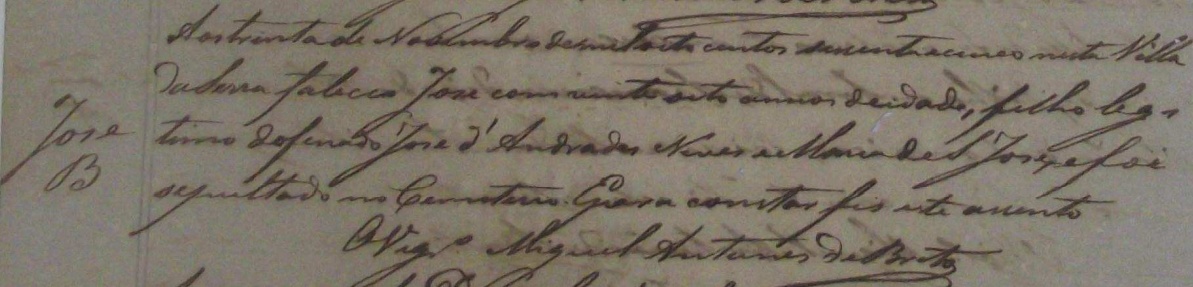 Aos trinta de Novembro de mil oito centos sessenta e cinco nesta Villa
da Serra faleceo José com vinte oito annos de idade, filho legi
José
B
timo do finado José d'Andrades Neves e Maria de S. José, e foi
sepultado no Cemiterio. E para constar fis este assento
O Vigrº Miguel Antunes de Brito